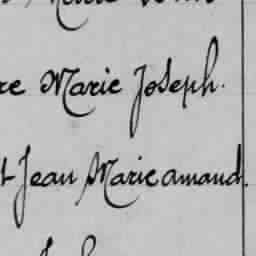 re Marie Joseph.
t Jean Marie amand.